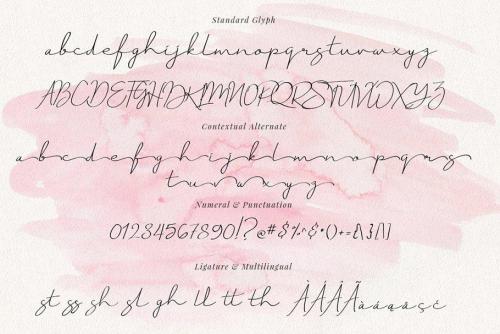 Standard Glyph
abcdefghijklmnopqrstuvwxyz
ABCDEFGHIJKLMNOPQRSTUVWXYZ
Contextual Alternate
abcdefghijklmnopqrs
tuvwxyz
Numeral & Punctuation
01234567890!?@#$%^&*()+={}[]
Ligature & Multilingual
st ss sh sl gh ll tt th ÀÁÂÃàáąäşč